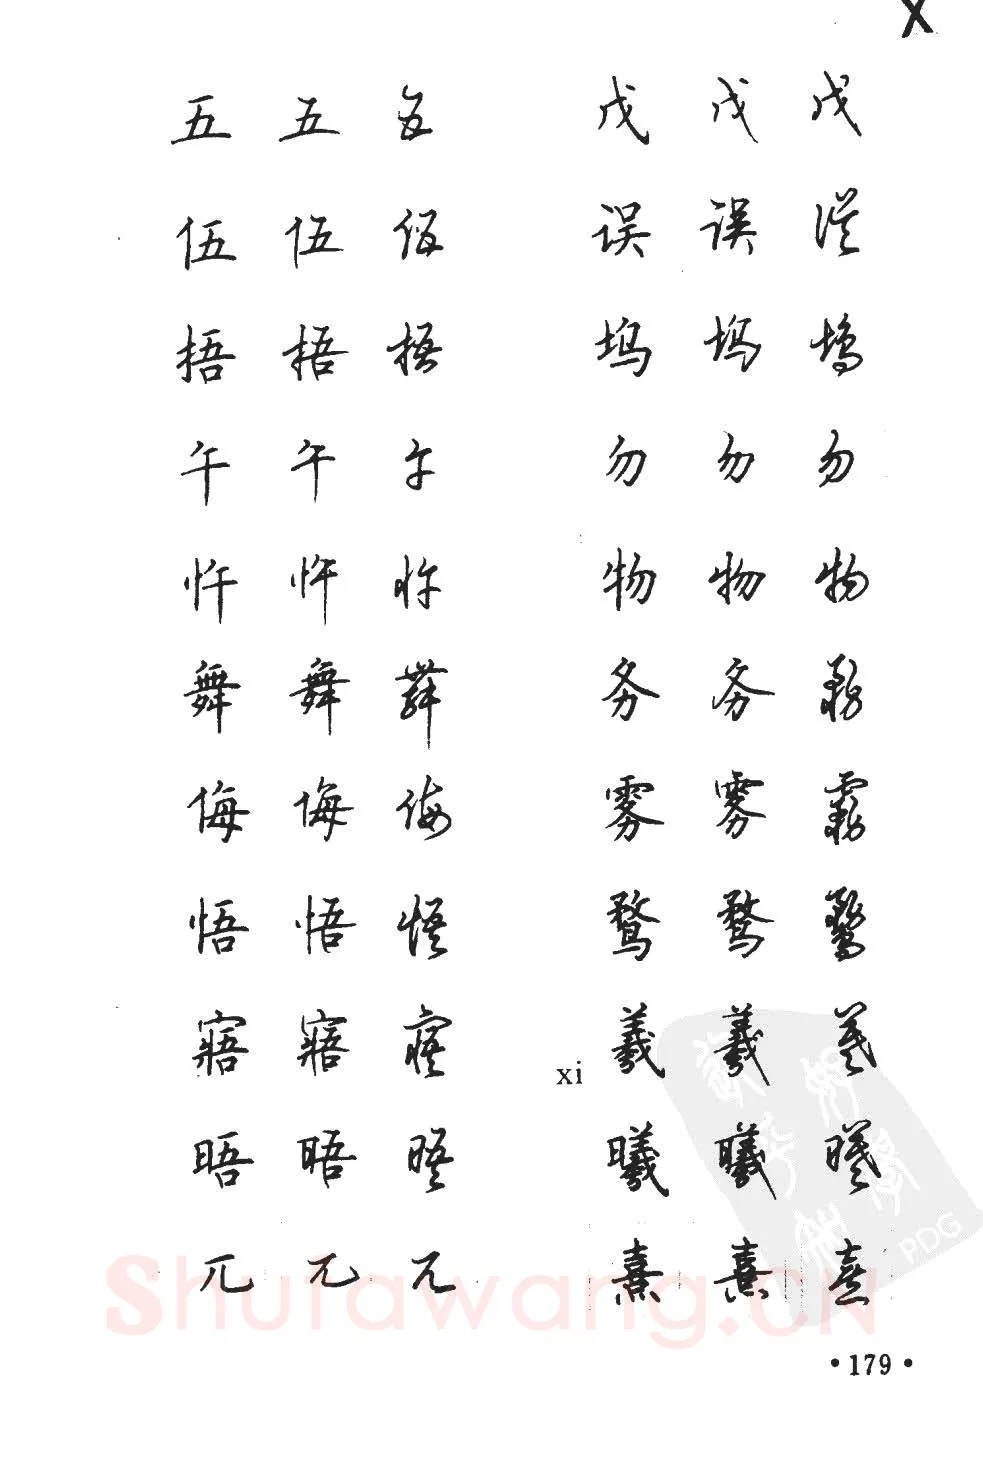 X
五 五 五 戊 戊 戊
伍 伍 伍 误 误 误
捂 捂 捂 坞 坞 坞
午 午 午 勿 勿 勿
忤 忤 忤 物 物 物
舞 舞 舞 务 务 務
侮 侮 侮 雾 雾 霧
悟 悟 悟 鹜 鹜 鶩
寤 寤 寤 xi 羲 羲 羲
晤 晤 晤 曦 曦 曦
兀 兀 兀 熹 熹 熹
Shufawang.CN
PDG
•179•